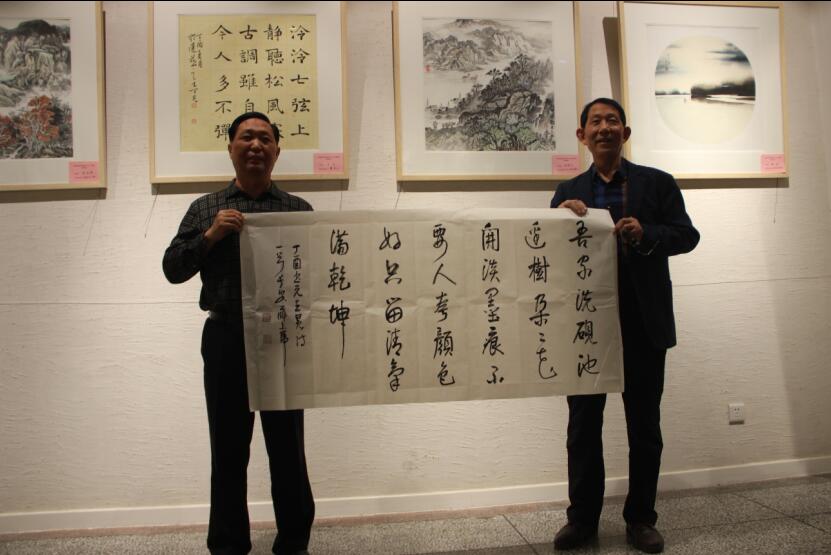 泠泠七弦上
静聽松風寒
古調雖自
今人多不彈
吾家洗硯池
邊樹朶〻花
開淡墨痕不
要人夸顏色
好只留清氣
滿乾坤
丁酉 元王冕诗